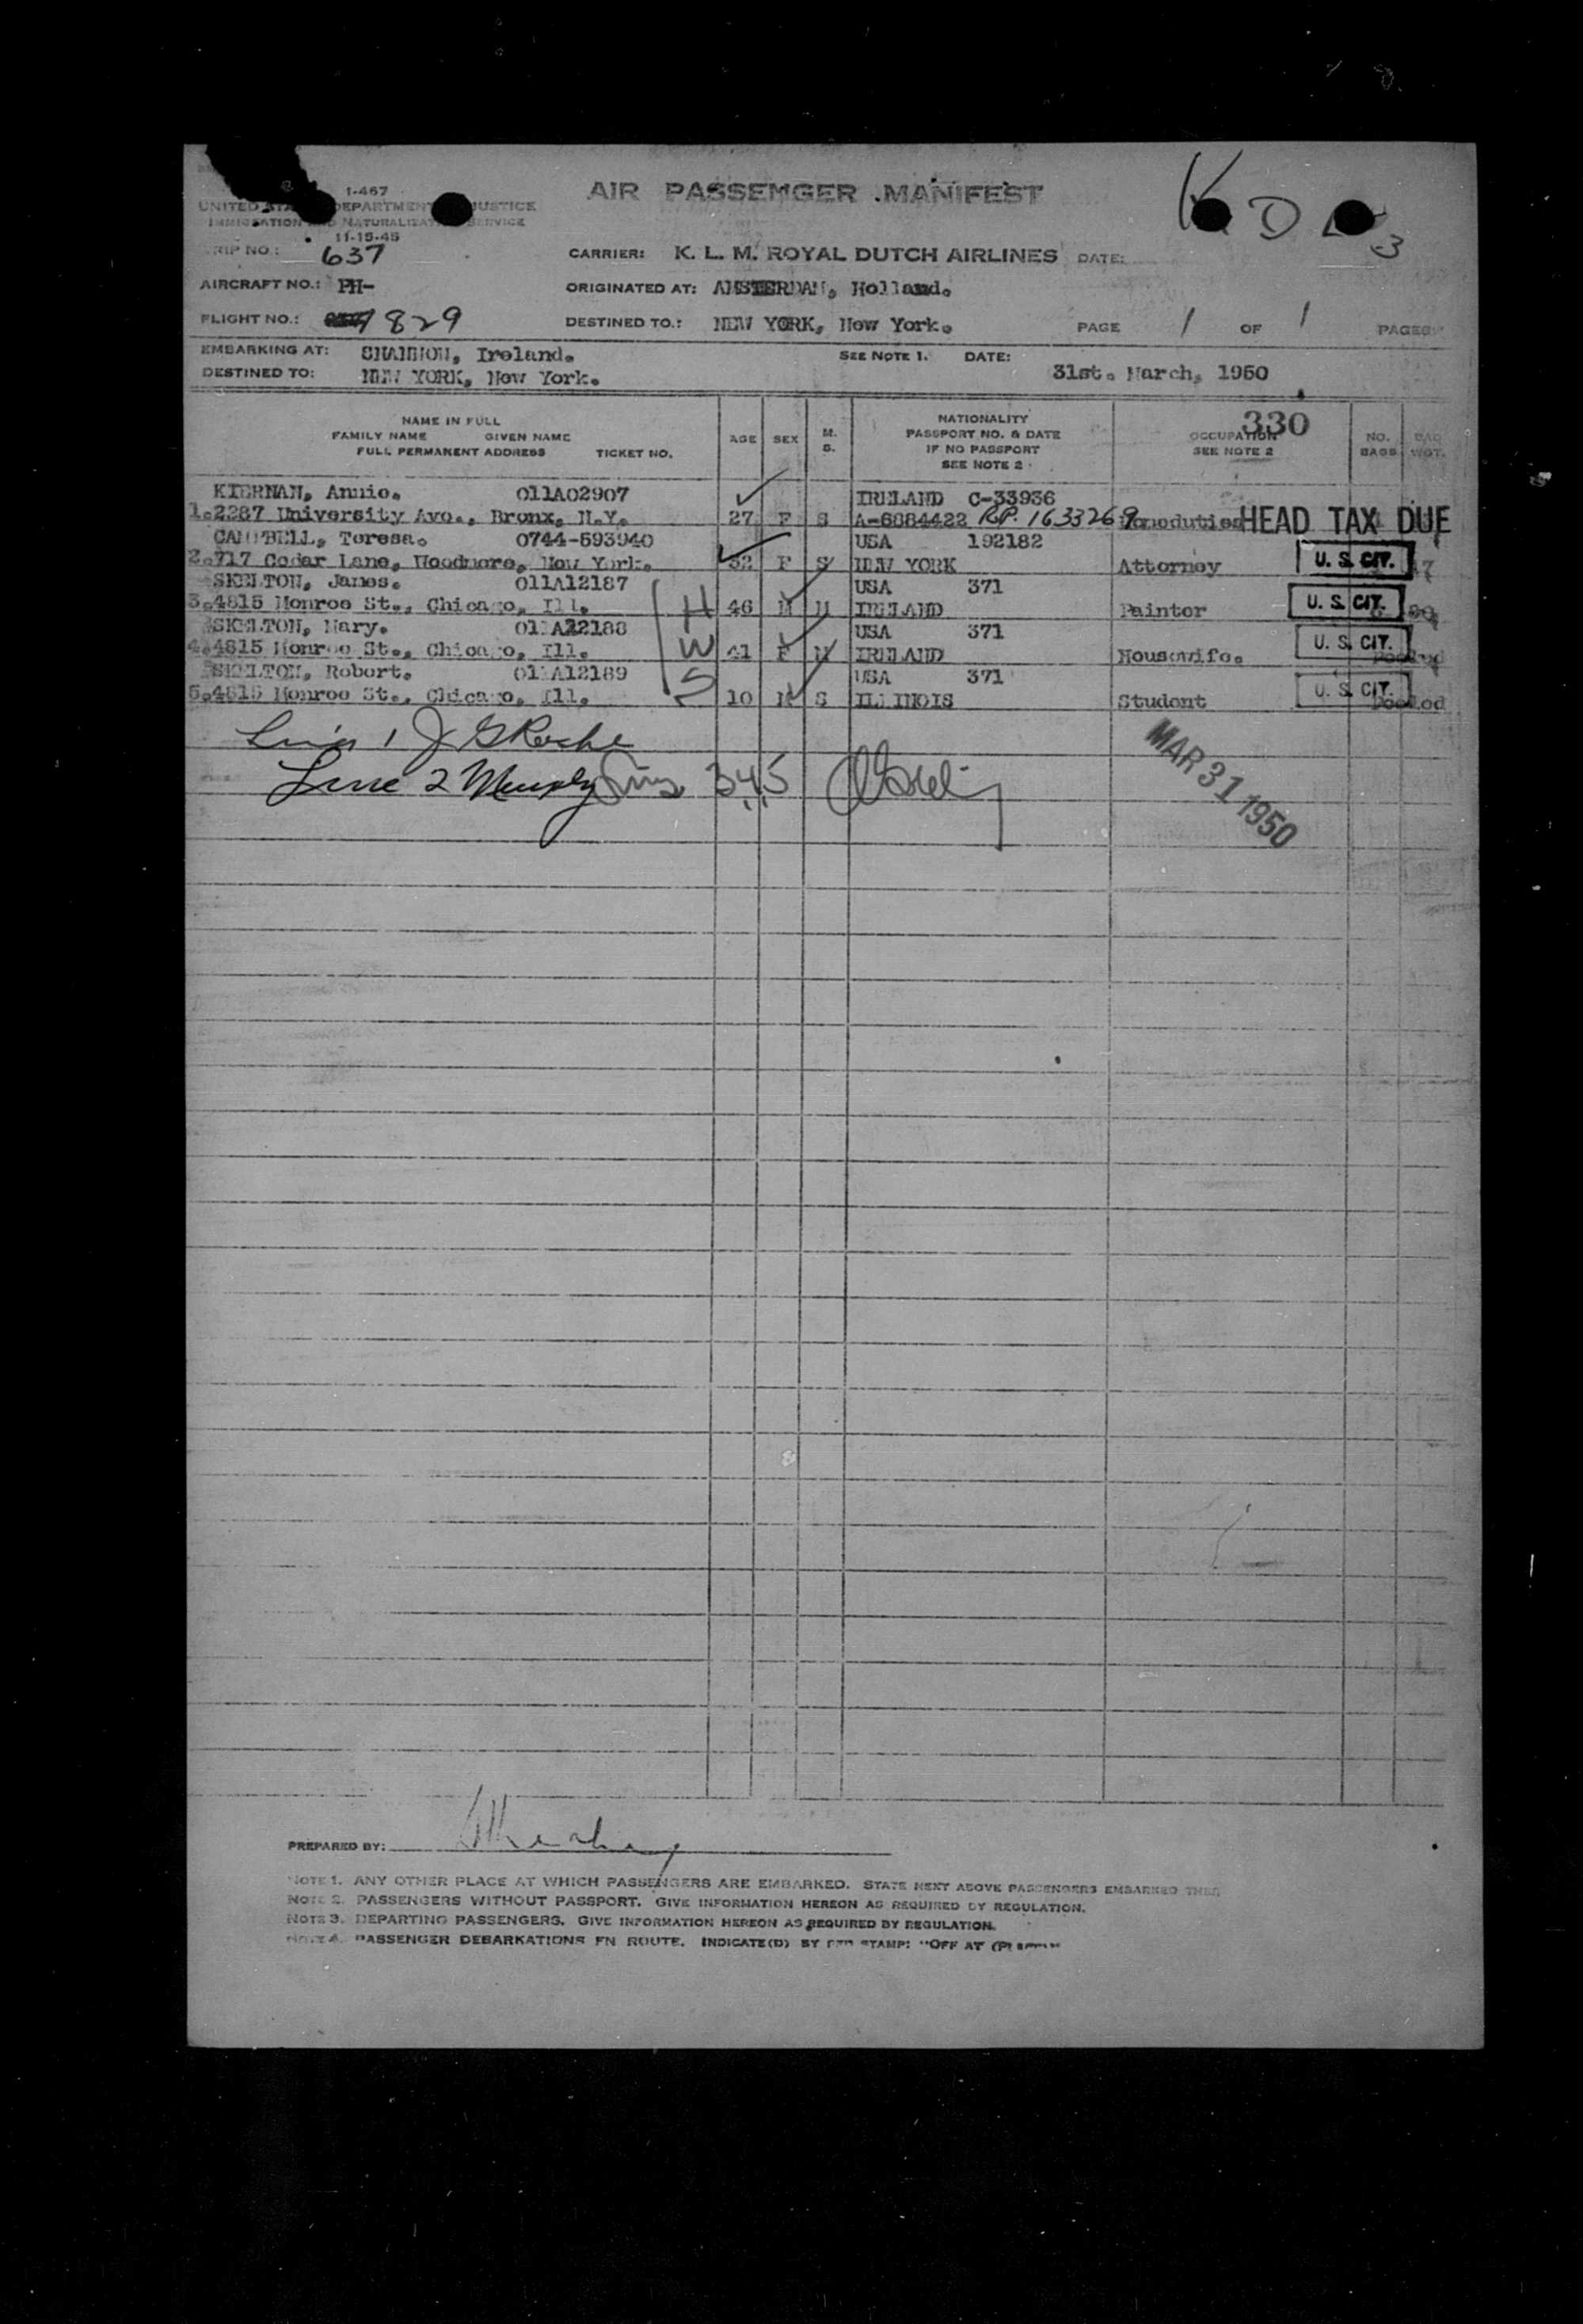 AIR PASSENGER MANIFEST
1-467
UNITED STA DEPARTMENT JUSTICE
IMMIGRATION AND NATURALIZATION SERVICE
11-15-45
TRIP NO.: 637
CARRIER: K. L. M. ROYAL DUTCH AIRLINES DATE:
AIRCRAFT NO.: PH-
ORIGINATED AT: AMSTERDAM, Holland.
FLIGHT NO.: 829
DESTINED TO.: NEW YORK, New York.
PAGE 1 OF 1 PAGES
EMBARKING AT: SHANNON, Ireland.
SEE NOTE 1. DATE:
DESTINED TO: NEW YORK, New York.
31st. March, 1950
330
NAME IN FULL
FAMILY NAME GIVEN NAME
FULL PERMANENT ADDRESS TICKET NO.
AGE SEX M. S.
NATIONALITY
PASSPORT NO. & DATE
IF NO PASSPORT
SEE NOTE 2
OCCUPATION
SEE NOTE 2
NO. BAGS
BAG WGT.
KIERNAN, Annie. 011A02907 IRELAND C-33936
1.2287 University Ave., Bronx, N.Y. 27 F S A-6884422 R.P. 1633269 Homeduties HEAD TAX DUE
CAMPBELL, Teresa. 0744-593940 USA 192182
2.717 Cedar Lane, Woodmere, New York. 32 F S NEW YORK Attorney U. S. CIT.
SKELTON, James. 011A12187 USA 371
3.4815 Monroe St., Chicago, Ill. H 46 M M IRELAND Painter U. S. CIT.
SKELTON, Mary. 011A12188 USA 371
4.4815 Monroe St., Chicago, Ill. W 41 F M IRELAND Housewife. U. S. CIT.
SKELTON, Robert. 011A12189 USA 371
5.4815 Monroe St., Chicago, Ill. S 10 M S ILLINOIS Student U. S. CIT. Pooled
Line 1 J G Roche
Line 2 Murphy Lines 3,4,5
MAR 31 1950
PREPARED BY:
NOTE 1. ANY OTHER PLACE AT WHICH PASSENGERS ARE EMBARKED. STATE NEXT ABOVE PASSENGERS EMBARKED THER
NOTE 2. PASSENGERS WITHOUT PASSPORT. GIVE INFORMATION HEREON AS REQUIRED BY REGULATION.
NOTE 3. DEPARTING PASSENGERS. GIVE INFORMATION HEREON AS REQUIRED BY REGULATION.
NOTE 4. PASSENGER DEBARKATIONS EN ROUTE. INDICATE(D) BY RED STAMP: "OFF AT